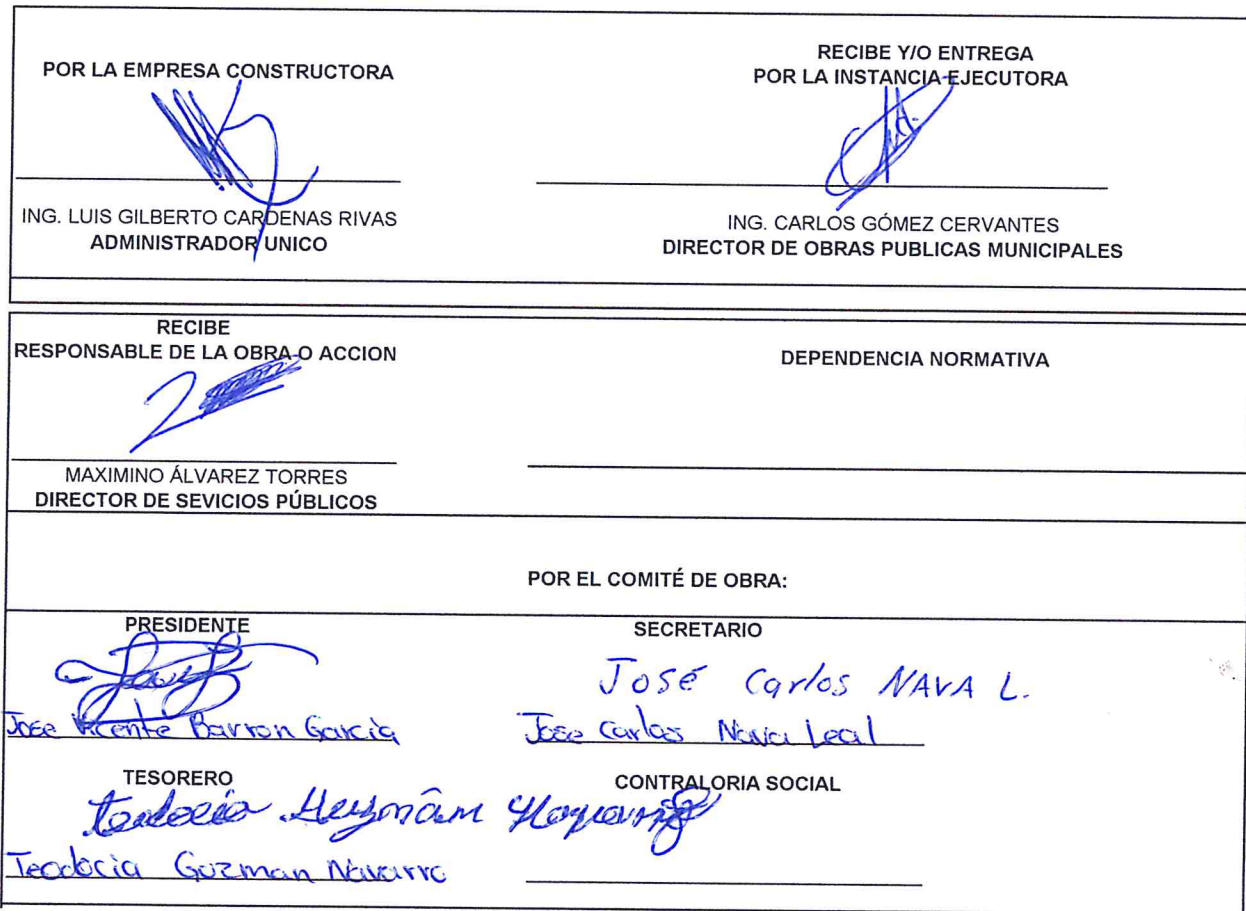 POR LA EMPRESA CONSTRUCTORA
ING. LUIS GILBERTO CARDENAS RIVAS
ADMINISTRADOR UNICO
RECIBE Y/O ENTREGA
POR LA INSTANCIA EJECUTORA
ING. CARLOS GÓMEZ CERVANTES
DIRECTOR DE OBRAS PUBLICAS MUNICIPALES
RECIBE
RESPONSABLE DE LA OBRA O ACCION
MAXIMINO ÁLVAREZ TORRES
DIRECTOR DE SEVICIOS PÚBLICOS
DEPENDENCIA NORMATIVA
POR EL COMITÉ DE OBRA:
PRESIDENTE
Jose Vicente Barron Garcia
SECRETARIO
José Carlos NAVA L.
Jose Carlos Nava Leal
TESORERO
Teodocia Guzman Navarro
CONTRALORIA SOCIAL